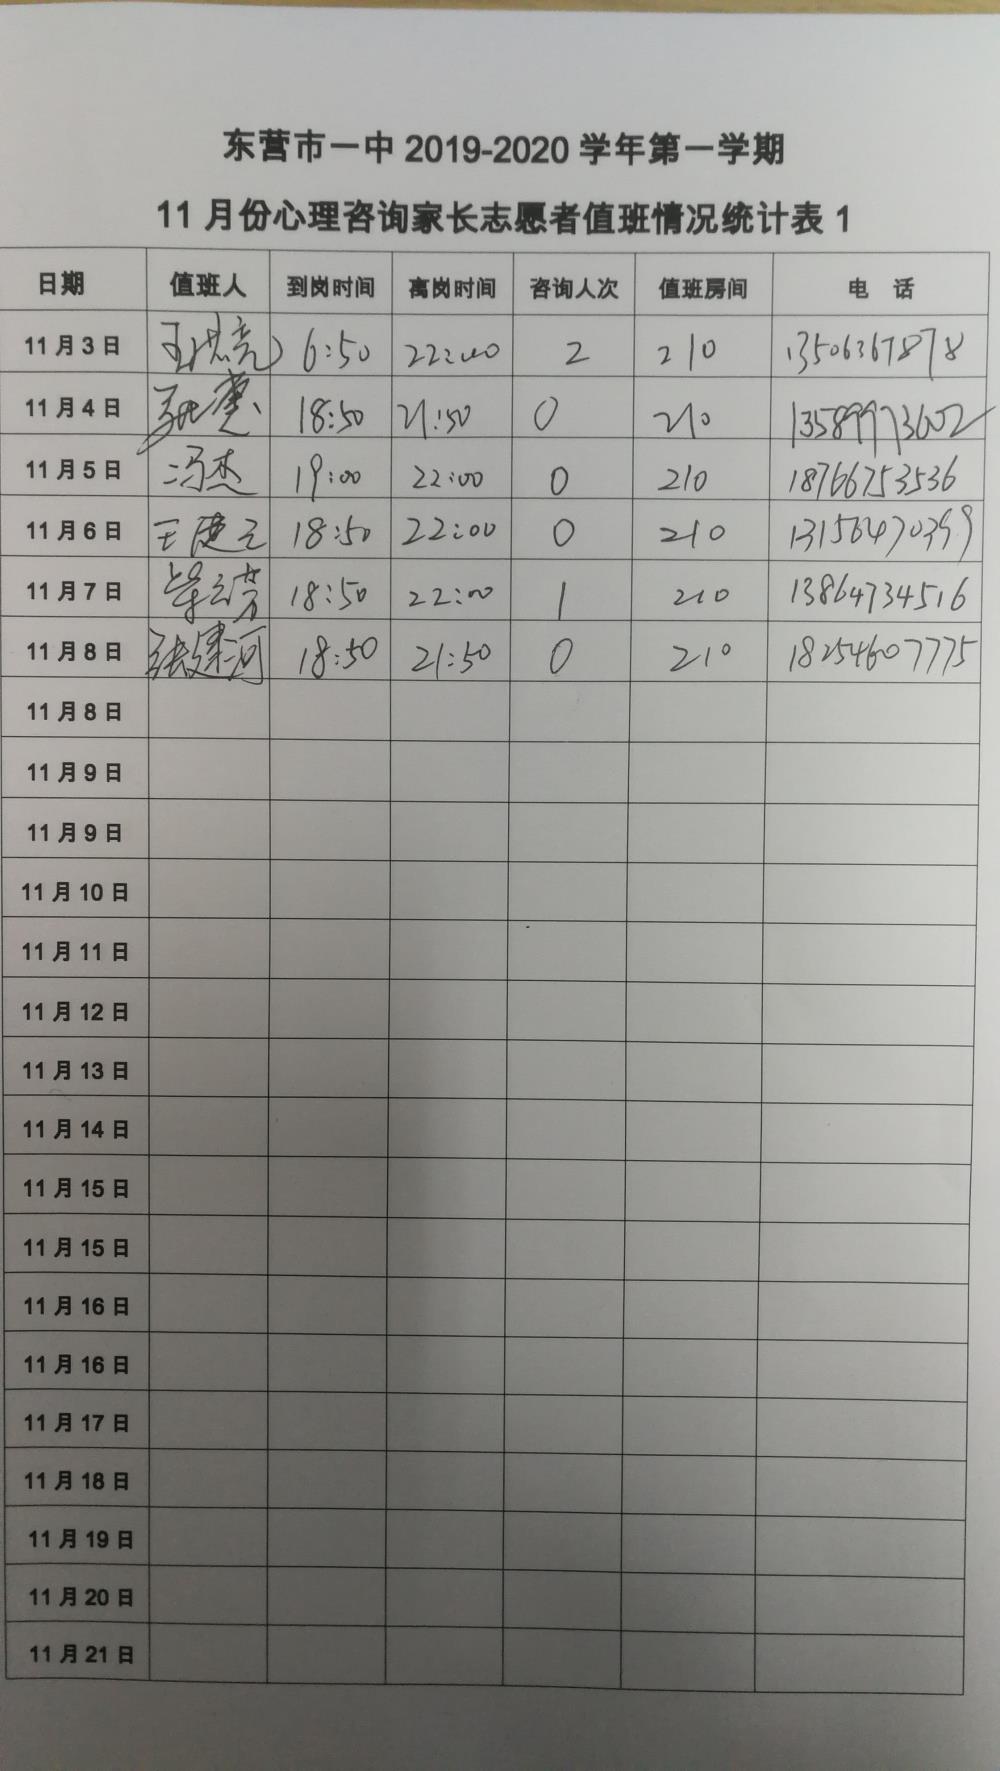 东营市一中 2019-2020 学年第一学期
11 月份心理咨询家长志愿者值班情况统计表 1
日期 值班人 到岗时间 离岗时间 咨询人次 值班房间 电 话
11 月 3 日 6:50 22:00 2 210 13506367878
11 月 4 日 18:50 21:50 0 210 13589973602
11 月 5 日 冯杰 19:00 22:00 0 210 18766753536
11 月 6 日 18:50 22:00 0 210 13156470399
11 月 7 日 18:50 22:00 1 210 13864734516
11 月 8 日 张建河 18:50 21:50 0 210 18254607775
11 月 8 日
11 月 9 日
11 月 9 日
11 月 10 日
11 月 11 日
11 月 12 日
11 月 13 日
11 月 14 日
11 月 15 日
11 月 15 日
11 月 16 日
11 月 16 日
11 月 17 日
11 月 18 日
11 月 19 日
11 月 20 日
11 月 21 日